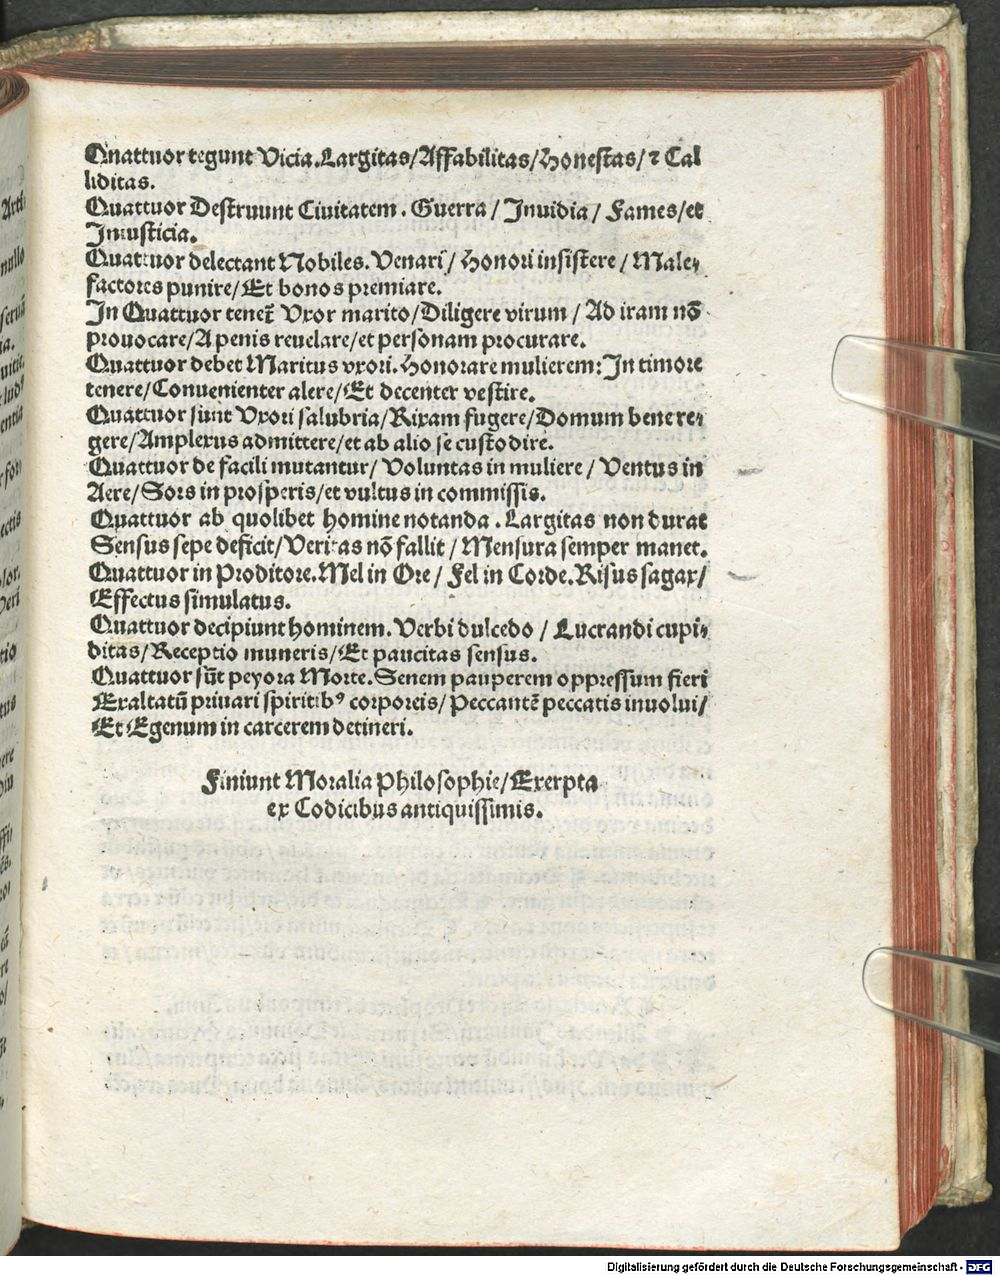 Quattuor tegunt Vicia. Largitas/Affabilitas/Honestas/⁊ Cal
liditas.
Quattuor Destruunt Ciuitatem. Guerra/Inuidia/Fames/et
Iniusticia.
Quattuor delectant Nobiles. Venari/Honori insistere/Male⸗
factores punire/Et bonos premiare.
In Quattuor tenet̃ Vxor marito/Diligere virum/Ad iram nō
prouocare/A penis reuelare/et personam procurare.
Quattuor debet Maritus vxori. Honorare mulierem: In timore
tenere/Conuenienter alere/Et decenter vestire.
Quattuor sunt Vxori salubria/Rixam fugere/Domum bene re⸗
gere/Amplexus admittere/et ab alio se custodire.
Quattuor de facili mutantur/Voluntas in muliere/Ventus in
Aere/Sors in prosperis/et vultus in commissis.
Quattuor ab quolibet homine notanda. Largitas non durat
Sensus sepe deficit/Veritas nō fallit/Mensura semper manet.
Quattuor in Proditore. Mel in Ore/Fel in Corde. Risus sagax/
Effectus simulatus.
Quattuor decipiunt hominem. Verbi dulcedo/Lucrandi cupi⸗
ditas/Receptio muneris/Et paucitas sensus.
Quattuor sūt peyora Morte. Senem pauperem oppressum fieri
Exaltatū priuari spiritibꝰ corporeis/Peccantē peccatis inuolui/
Et Egenum in carcerem detineri.
Finiunt Moralia Philosophie/Exerpta
ex Codicibus antiquissimis.
Digitalisierung gefördert durch die Deutsche Forschungsgemeinschaft - DFG